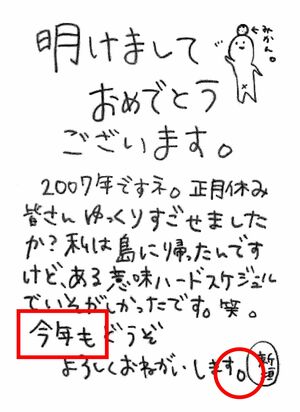 明けまして
←みかん。
おめでとう
ございます。
2007年ですネ。正月休み
皆さんゆっくりすごせました
か？私は島に帰ったんです
けど、ある意味ハードスケジュール
でいそがしかったです。笑。
今年もどうぞ
よろしくおねがいします。
新垣